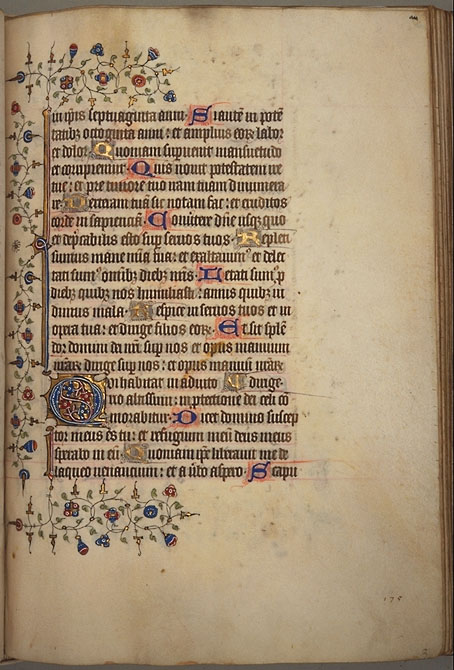 in ip̄is septuaginta anni. Si autē in potē
tatibꝫ octoginta anni : et amplius eoꝝ labor
et dolor. Quoniam supuenit mansuetudo
et corripiemur. Quis nouit potestatem ire
tue : et pre timore tuo iram tuam dinumera
re. Dexteram tuā sic notam fac : et eruditos
corde in sapiencia. Conūtere dn̄e usqꝫ quo
et dep̄cabilis esto sup seruos tuos. Repleti
sumus mane mīa tua : et exaltauim᷒ et delec
tati sum᷒ omībꝫ diebꝫ nr̄is. Letati sum᷒ p
diebꝫ quibꝫ nos humiliasti : annis quibꝫ ui
dimus mala. Respice in seruos tuos et in
opera tua : et dirige filios eoꝝ. Et sit splē
dor domini dei nr̄i sup nos et opus manuum
nr̄aꝝ dirige sup nos : et opus manuū nr̄aꝝ
Qui habitat in adiuto dirige.
rio altissimi : in ptectione dei celi cō
morabitur. Dicet domino suscep
tor meus es tu : et refugium meū deus meus
sperabo in eū. Quoniam ip̄e liberauit me de
laqueo uenantium : et a ūbo aspero. Scapu
175